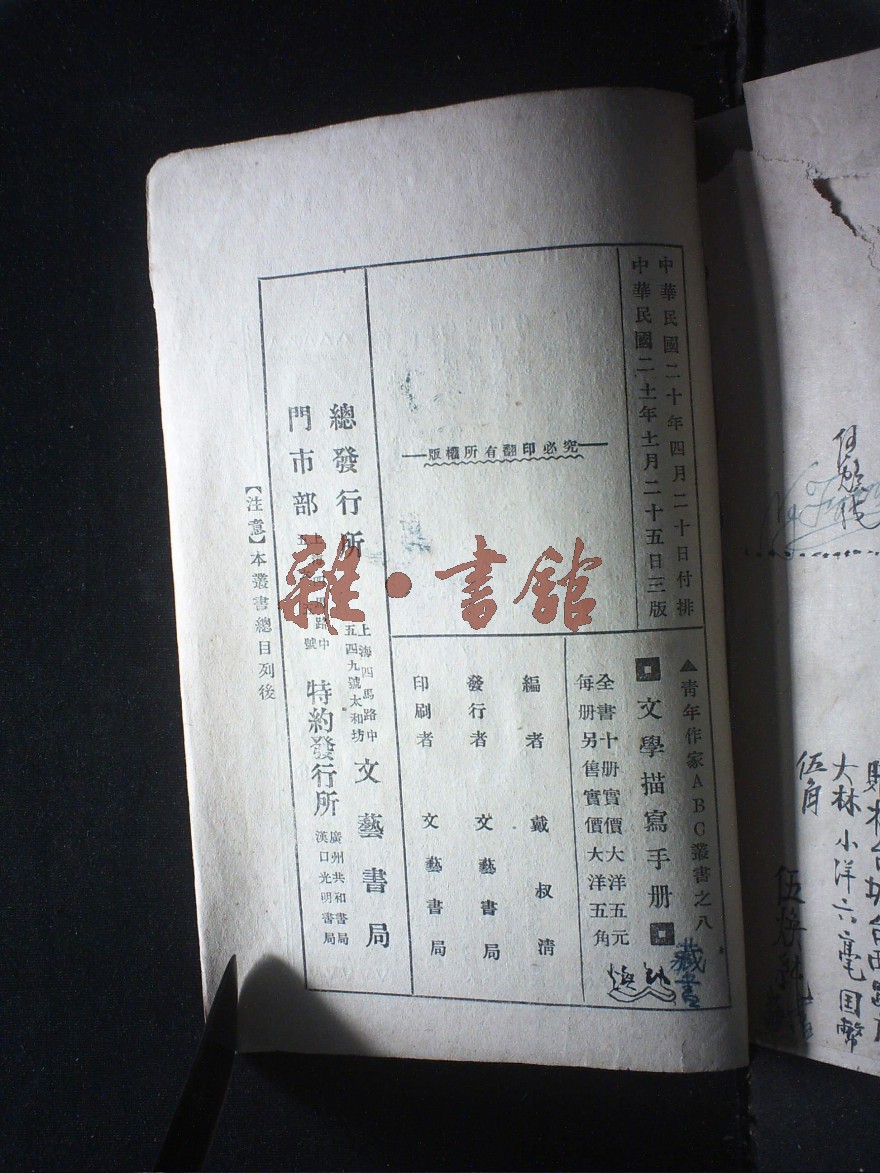 中華民國二十年四月二十日付排
中華民國二十一年十一月二十五日三版
版權所有翻印必究
▲青年作家ABC叢書之八
文學描寫手册
全書十册實價大洋五元
每册另售實價大洋五角
編者 戴叔清
發行者 文藝書局
印刷者 文藝書局
總發行所 上海四馬路中
五四九號太和坊 文藝書局
門市部
路中
號
特約發行所 廣州共和書局
漢口光明書局
【注意】本叢書總目列後
雜·書館
藏書
大林小洋六毫国幣
伍角